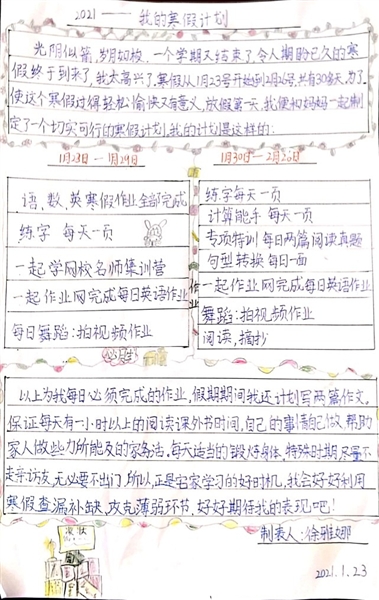 2021——我的寒假计划
光阴似箭,岁月如梭,一个学期又结束了,令人期盼已久的寒
假终于到来了,我太高兴了,寒假从1月23号开始到2月26号,共有30多天,为了
使这个寒假过得轻松愉快又有意义,放假第一天,我便和妈妈一起制
定了一个切实可行的寒假计划,我的计划是这样的:
1月23日—1月29日
语、数、英寒假作业全部完成
练字 每天一页
一起学网校名师集训营
一起作业网完成每日英语作业
每日舞蹈:拍视频作业
1月30日—2月26日
练字每天一页
计算能手 每天一页
专项特训 每日两篇阅读真题
句型转换 每日一面
一起作业网完成每日英语作业
舞蹈:拍视频作业
阅读,摘抄
作业
必胜
以上为我每日必须完成的作业,假期期间我还计划写两篇作文,
保证每天有一小时以上的阅读课外书时间,自己的事情自己做,帮助
家人做些力所能及的家务活,每天适当的锻炼身体,特殊时期尽量不
走亲访友,无必要不出门,所以,正是宅家学习的好时机,我会好好利用
寒假查漏补缺,攻克薄弱环节,好好期待我的表现吧!
制表人:徐雅娜
2021.1.23